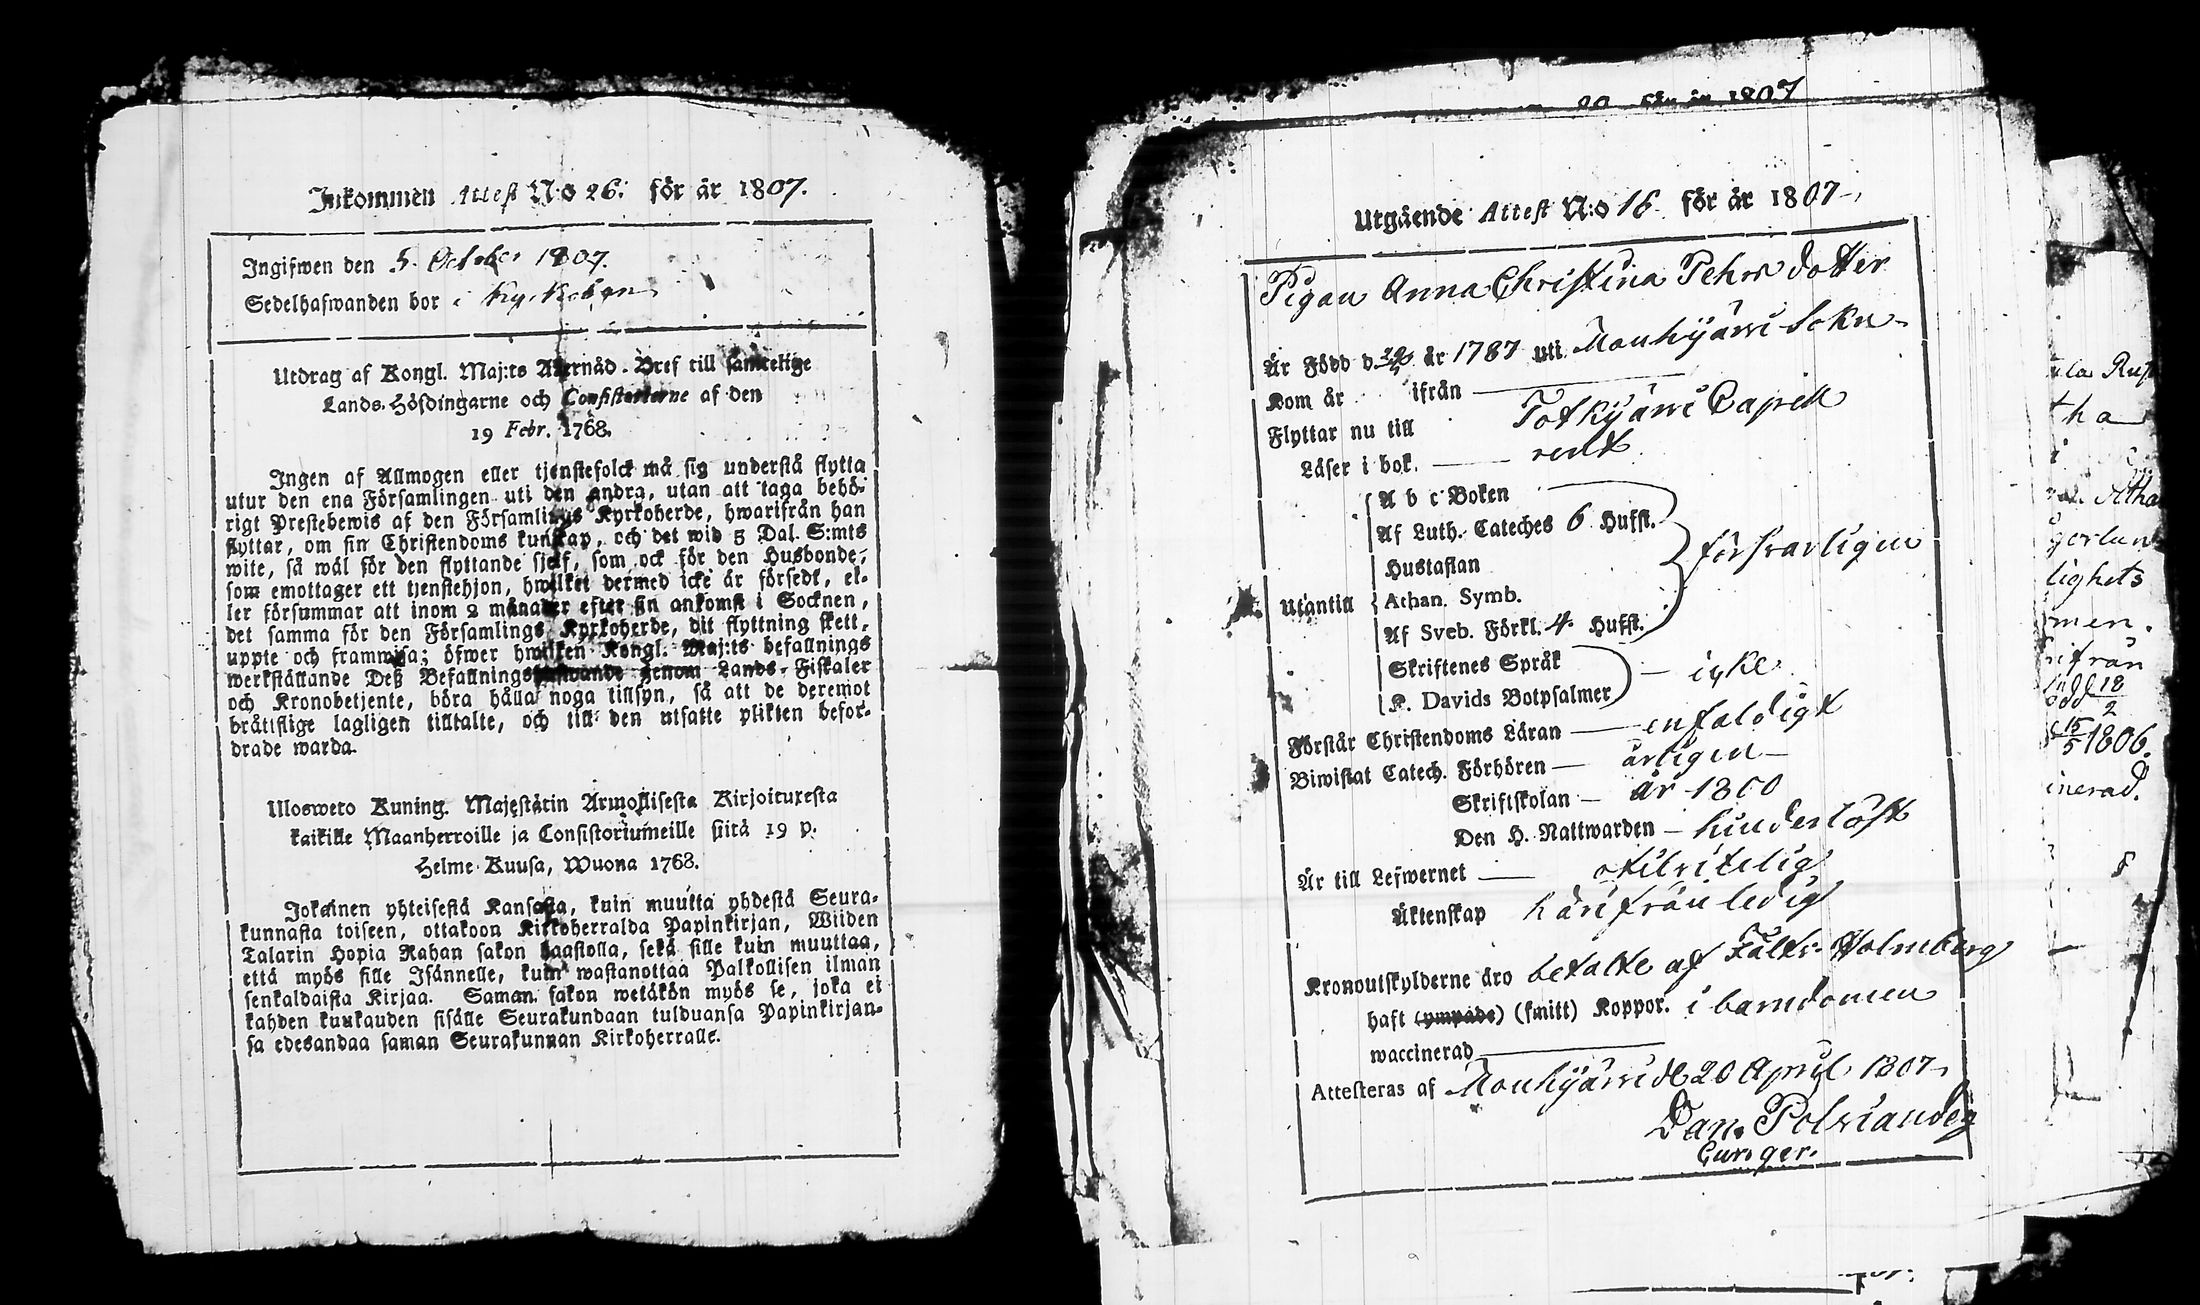 Inkommen Attest N:o 26. för år 1807.
Ingifwen den 5. October 1807.
Sedelhafwanden bor i Kyrkobyn
Utdrag af Kongl. Maj:ts Allernåd. Bref till samtelige
Lands-Höfdingarne och Consistorierne af den
19 Febr. 1768.
Ingen af Allmogen eller tjenstefolck må sig understå flytta
utur den ena Församlingen uti den andra, utan att taga behö-
rigt Prestebewis af den Församlings Kyrkoherde, hwarifrån han
flyttar, om sin Christendoms kunskap, och det wid 5 Dal. S:mts
wite, så wäl för den flyttande sjelf, som ock för den Husbonde,
som emottager ett tjenstehjon, hwilket dermed icke är försedt, el-
ler försummar att inom 2 månader efter sin ankomst i Socknen,
det samma för den Församlings Kyrkoherde, dit flyttning skett,
uppte och framwisa; öfwer hwilken Kongl. Maj:ts befallnings
werkställande Deß Befallningshafwande genom Lands-Fiskaler
och Kronobetjente, böra hålla noga tillsyn, så att de deremot
bråttslige lagligen tilltalte, och till den utsatte plikten befor-
drade warda.
Ulosweto Kuning. Majestätin Armollisesta Kirjoituxesta
kaikille Maanherroille ja Consistoriumeille siitä 19 p.
Helme-Kuusa, Wuona 1768.
Jokainen yhteisestä Kansasta, kuin muutta yhdestä Seura-
kunnasta toiseen, ottakoon Kirkoherralda Papinkirjan, Wiiden
Talarin Hopia Rahan sakon haastolla, sekä sille kuin muuttaa,
että myös sille Isännelle, kuin wastanottaa Palkollisen ilman
senkaldaista Kirjaa. Saman sakon wetäkön myös se, joka ei
kahden kuukauden sisälle Seurakundaan tulduansa Papinkirjan-
sa edesandaa saman Seurakunnan Kirkoherralle.
för år 1807
Utgående Attest N:o 16 för år 1807
Pigan Anna Christina Pehrs dotter
Är Född d. år 1787 uti Mouhijärwi Sokn
Kom år ifrån
Flyttar nu till Totkijärwi Capell
Läser i bok. rent
A b c Boken
Af Luth. Cateches 6 Hufst.
Hustaflan
Utantill Athan. Symb. försvarligen
Af Sveb. Förkl. 4 Hufst.
Skriftenes Språk
K. Davids Botpsalmer icke
Förstår Christendoms Läran enfaldigt
Biwistat Catech. Förhören årligen
Skriftskolan år 1800
Den H. Nattwarden hinderlöst
Är till Lefwernet otilvitelig
Äktenskap härifrån ledig
Kronoutskylderne äro betalte af Fältv. Holmberg
haft (ympade) (smitt) Koppor. i barndomen
waccinerad
Attesteras af Mouhijärwi d 20 April 1807
Dan. Polviander
Cur. ger.
tha
i
lighets
men.
ifrån
18
2
15
5 1806.
inerad.